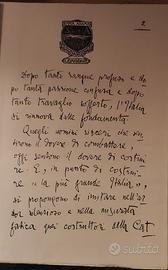 2
Dopo tanto sangue profuso e do
po tanta passione consunta e dopo
tanto travaglio sofferto, l'Italia
si rinnova dalle fondamenta
Quegli uomini sinceri che sen
tirono il dovere di combattere,
oggi sentono il dovere di costrui
re. E, in punto di costrui
re "la più grande Italia",
si propongono di imitare nell'
silenzioso e nella misurata
fatica quei costruttori della
Subito